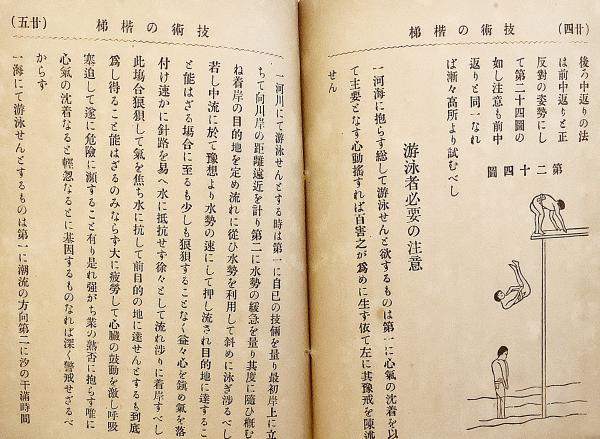 (廿四)　技術の楷梯
後ろ中返りの法
は前中返りと正
反對の姿勢にし
て第二十四圖の
如し注意も前中
返りと同一なれ
ば漸々高所より試むべし
第二十四圖
游泳者必要の注意
一河海に抱らす總して游泳せんと欲するものは第一に心氣の沈着を以
て主要となす心動搖すれば百害之が爲めに生す依て左に其豫戒を陳述
せん
(廿五)　技術の楷梯
一河川にて游泳せんとする時は第一に自己の技倆を量り最初岸上に立
ちて向川岸の距離遠近を計り第二に水勢の緩急を量り其度に隨ひ概む
ね着岸の目的地を定め流れに從ひ水勢を利用して斜めに泳ぎ渉るべし
若し中流に於て豫想より水勢の速にして押し流され目的地に達するこ
と能はざる塲合に至るも少しも狼狽することなく益々心を鎭め氣を落
付け速かに針路を易へ水に抵抗せず徐々として流れ渉りに着岸すべし
此塲合狼狽して氣を焦ち水に抗して前目的の地に達せんとするも到底
爲し得ること能はざるのみならす大に疲勞して心臟の鼓動を激し呼吸
塞迫して遂に危險に瀕すること有り是れ強がち業の熟否に抱らす唯に
心氣の沈着なると輕忽なるとに基因するものなれば深く警戒せざるべ
からず
一海にて游泳せんとするものは第一に潮流の方向第二に汐の干滿時間